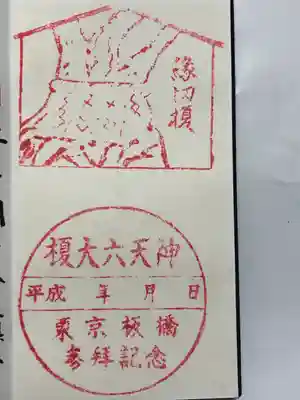 縁切榎
榎大六天神
平成 年 月 日
東京板橋
参拝記念